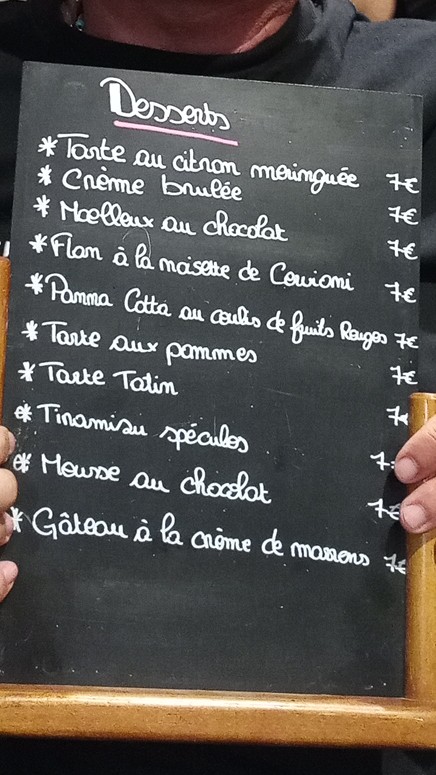 Desserts
* Tarte au citron meringuée 7€
* Crème brulée 7€
* Moelleux au chocolat 7€
* Flan à la noisette de Cervioni 7€
* Panna Cotta au coulis de fruits Rouges 7€
* Tarte aux pommes 7€
* Tarte Tatin 7€
* Tiramisu spéculos 7
* Mousse au chocolat 7€
* Gâteau à la crème de marrons 7€